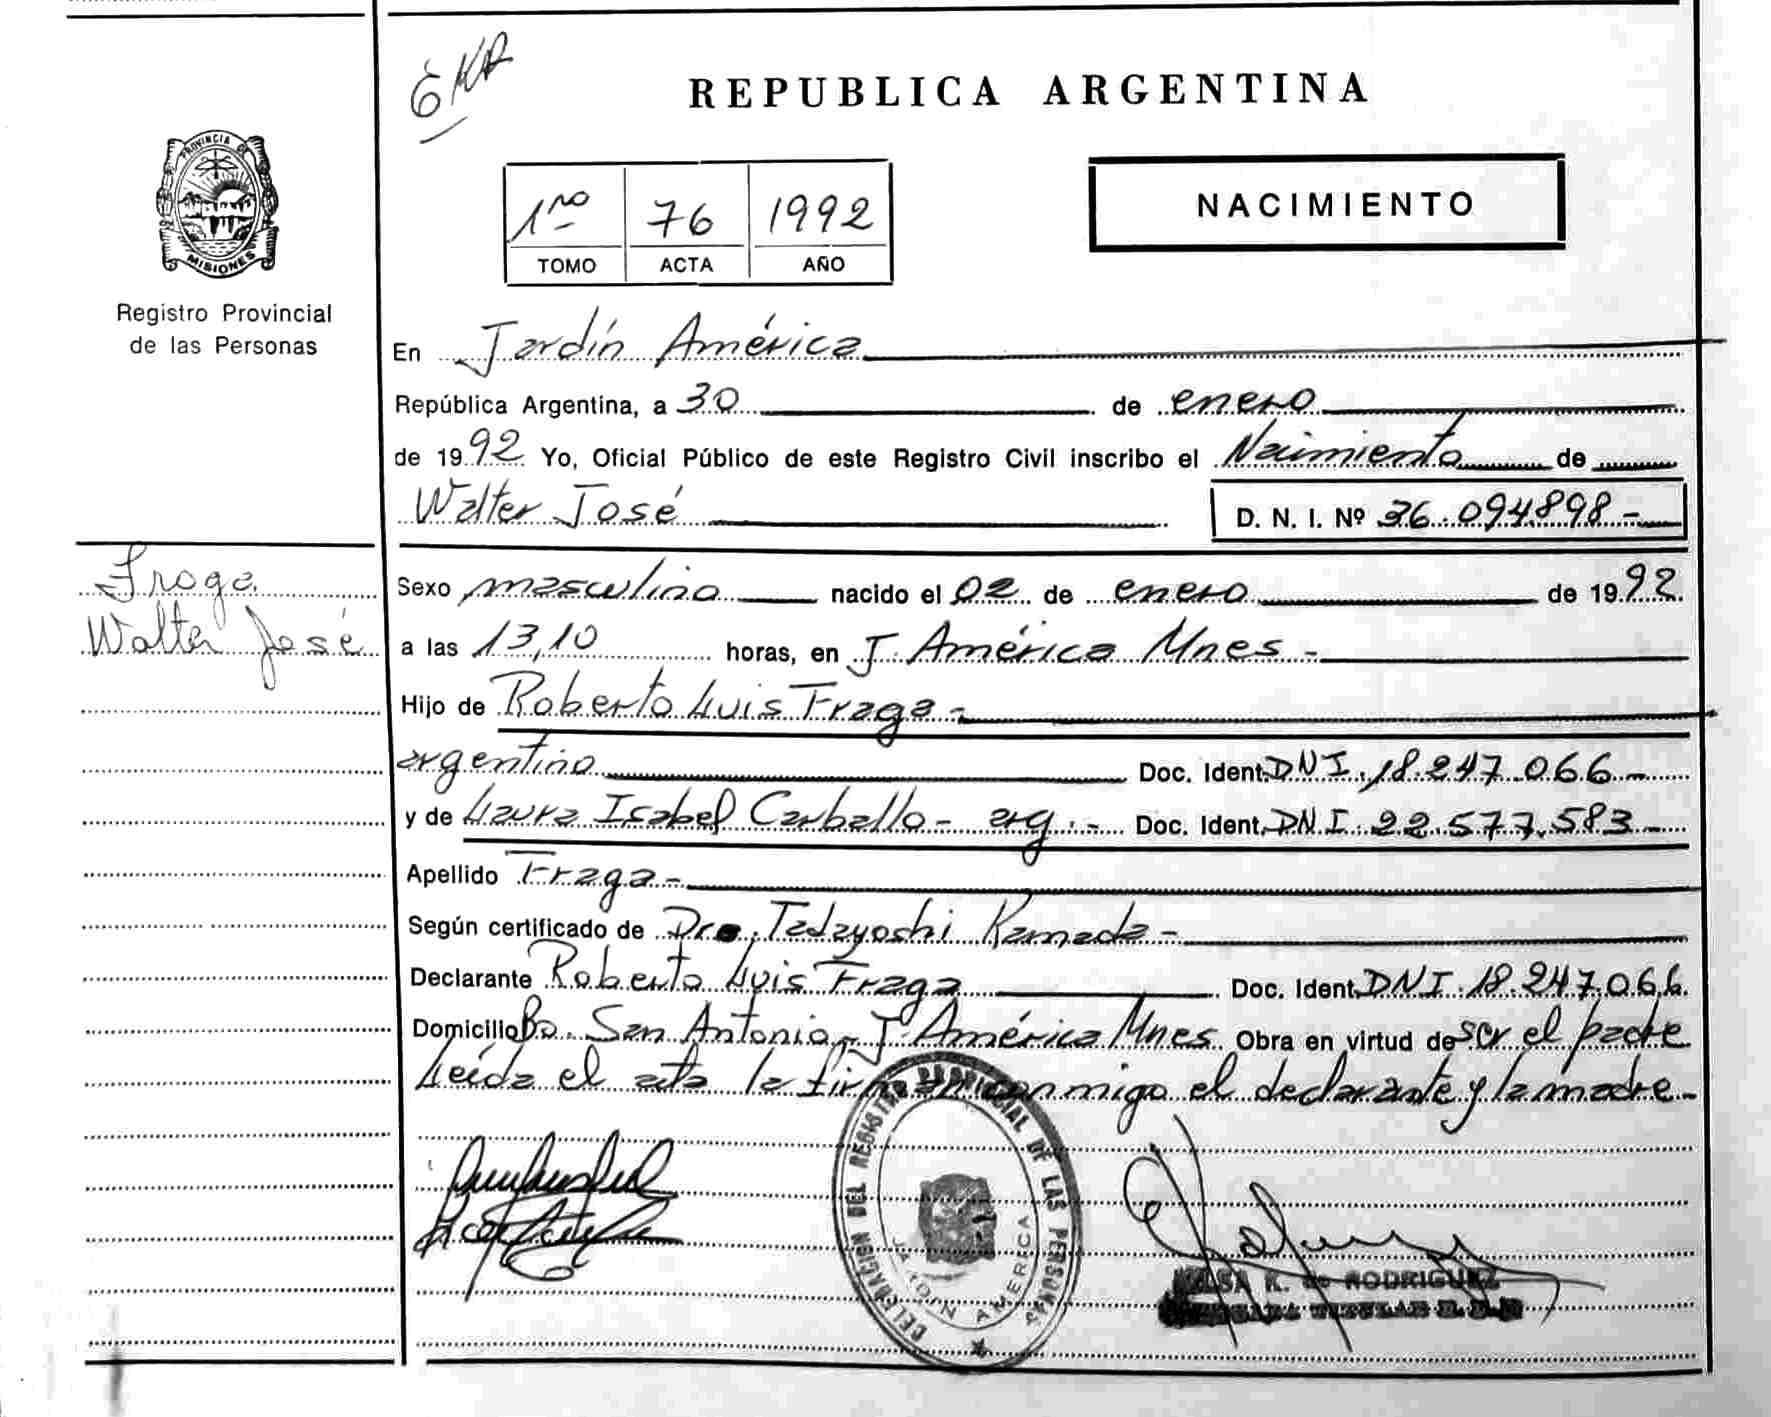 REPUBLICA ARGENTINA
PROVINCIA DE
MISIONES
Registro Provincial
de las Personas
NACIMIENTO
1ro 76 1992
TOMO ACTA AÑO
En Jardín América
República Argentina, a 30 de enero
de 1992 Yo, Oficial Público de este Registro Civil inscribo el Nacimiento de
Walter José D. N. I. Nº 36.094.898 -
Fraga
Walter José
Sexo masculino nacido el 02 de enero de 1992
a las 13,10 horas, en J. América Mnes -
Hijo de Roberto Luis Fraga -
argentino Doc. Ident. DNI. 18.247.066 -
y de Laura Isabel Carballo - arg. - Doc. Ident. DNI. 22.577.583 -
Apellido Fraga -
Según certificado de Tadayoshi Kamada -
Declarante Roberto Luis Fraga Doc. Ident. DNI. 18.247.066.
Domicilio Bo. San Antonio - J. América Mnes. Obra en virtud de ser el padre
Leída el acta la firman conmigo el declarante y la madre -
DELEGACION DEL REGISTRO PROVINCIAL DE LAS PERSONAS
JARDIN AMERICA
K. de RODRIGUEZ
TITULAR